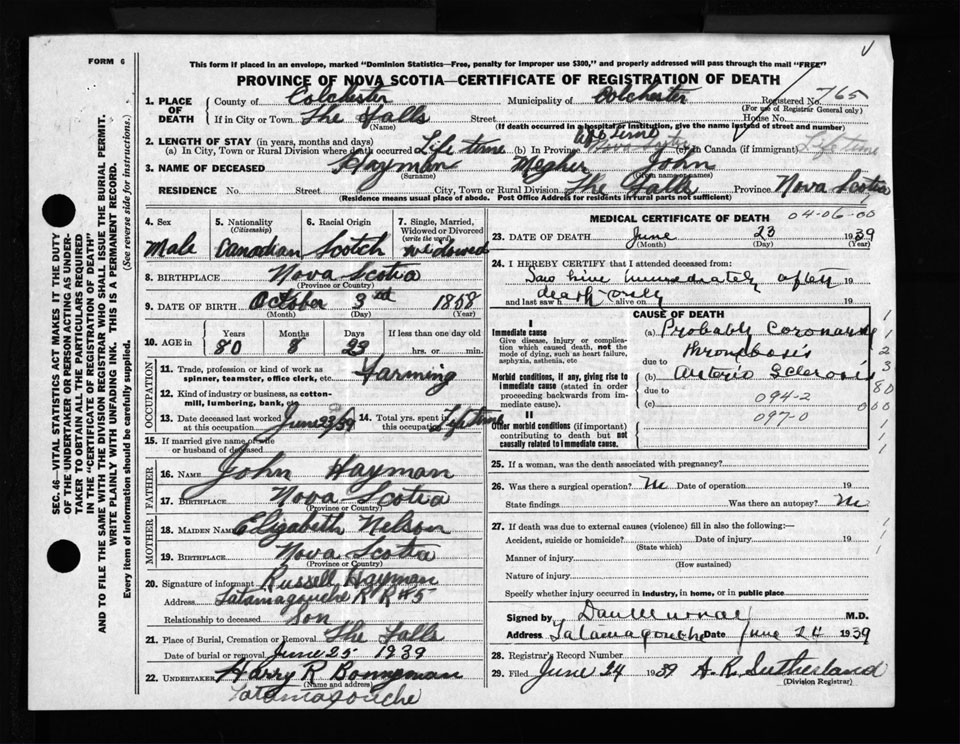 FORM 6
This form if placed in an envelope, marked "Dominion Statistics—Free, penalty for improper use $300," and properly addressed will pass through the mail "FREE"
PROVINCE OF NOVA SCOTIA—CERTIFICATE OF REGISTRATION OF DEATH
1. PLACE OF DEATH County of Colchester Municipality of Colchester Registered No. 765
(For use of Registrar General only)
If in City or Town The Falls Street House No.
(Name) (If death occurred in a hospital or institution, give the name instead of street and number)
2. LENGTH OF STAY (in years, months and days)
(a) In City, Town or Rural Division where death occurred Life time (b) In Province Life Time (c) In Canada (if immigrant) Life time
3. NAME OF DECEASED Hayman Megher John
(Surname) (Given name or names)
RESIDENCE No. Street City, Town or Rural Division The Falls Province Nova Scotia
(Residence means usual place of abode. Post Office Address for residents in rural parts not sufficient)
4. Sex Male
5. Nationality (Citizenship) Canadian
6. Racial Origin Scotch
7. Single, Married, Widowed or Divorced (write the word) Widowed
8. BIRTHPLACE Nova Scotia
(Province or Country)
9. DATE OF BIRTH October 3rd 1858
(Month) (Day) (Year)
10. AGE in Years 80 Months 8 Days 23 If less than one day old hrs. or min.
OCCUPATION
11. Trade, profession or kind of work as spinner, teamster, office clerk, etc. Farming
12. Kind of industry or business, as cotton-mill, lumbering, bank, etc.
13. Date deceased last worked at this occupation June 23/39
14. Total yrs. spent in this occupation Life time
15. If married give name of wife or husband of deceased
FATHER
16. NAME John Hayman
17. BIRTHPLACE Nova Scotia
(Province or Country)
MOTHER
18. MAIDEN NAME Elizabeth Nelson
19. BIRTHPLACE Nova Scotia
(Province or Country)
20. Signature of informant Russell Hayman
Address Tatamagouche R R #5
Relationship to deceased Son
21. Place of Burial, Cremation or Removal The Falls
Date of burial or removal June 25 1939
22. UNDERTAKER Harry R Bonnyman
(Name and address)
Tatamagouche
MEDICAL CERTIFICATE OF DEATH
04-06-00
23. DATE OF DEATH June 23 1939
(Month) (Day) (Year)
24. I HEREBY CERTIFY that I attended deceased from:
Saw him immediately after 19
death only
and last saw h alive on 19
CAUSE OF DEATH
I
Immediate cause
Give disease, injury or complication which caused death, not the mode of dying, such as heart failure, asphyxia, asthenia, etc
(a) Probably Coronary
thrombosis
due to
Morbid conditions, if any, giving rise to immediate cause (stated in order proceeding backwards from immediate cause).
(b) Arterio Sclerosis
due to 094-2
(c) 097-0
II
Other morbid conditions (if important) contributing to death but not causally related to immediate cause.
1
1
2
3
80
000
1
1
1
25. If a woman, was the death associated with pregnancy?
26. Was there a surgical operation? No Date of operation 19
State findings Was there an autopsy? No
27. If death was due to external causes (violence) fill in also the following:—
Accident, suicide or homicide? Date of injury 19
(State which)
Manner of injury
(How sustained)
Nature of injury
Specify whether injury occurred in industry, in home, or in public place
Signed by Dan Murray M.D.
Address Tatamagouche Date June 24 1939
28. Registrar's Record Number
29. Filed June 24 1939 A. R. Sutherland
(Division Registrar)
SEC. 46—VITAL STATISTICS ACT MAKES IT THE DUTY
OF THE UNDERTAKER OR PERSON ACTING AS UNDER-
TAKER TO OBTAIN ALL THE PARTICULARS REQUIRED
IN THE "CERTIFICATE OF REGISTRATION OF DEATH"
AND TO FILE THE SAME WITH THE DIVISION REGISTRAR WHO SHALL ISSUE THE BURIAL PERMIT.
WRITE PLAINLY WITH UNFADING INK. THIS IS A PERMANENT RECORD.
Every item of Information should be carefully supplied. (See reverse side for instructions.)